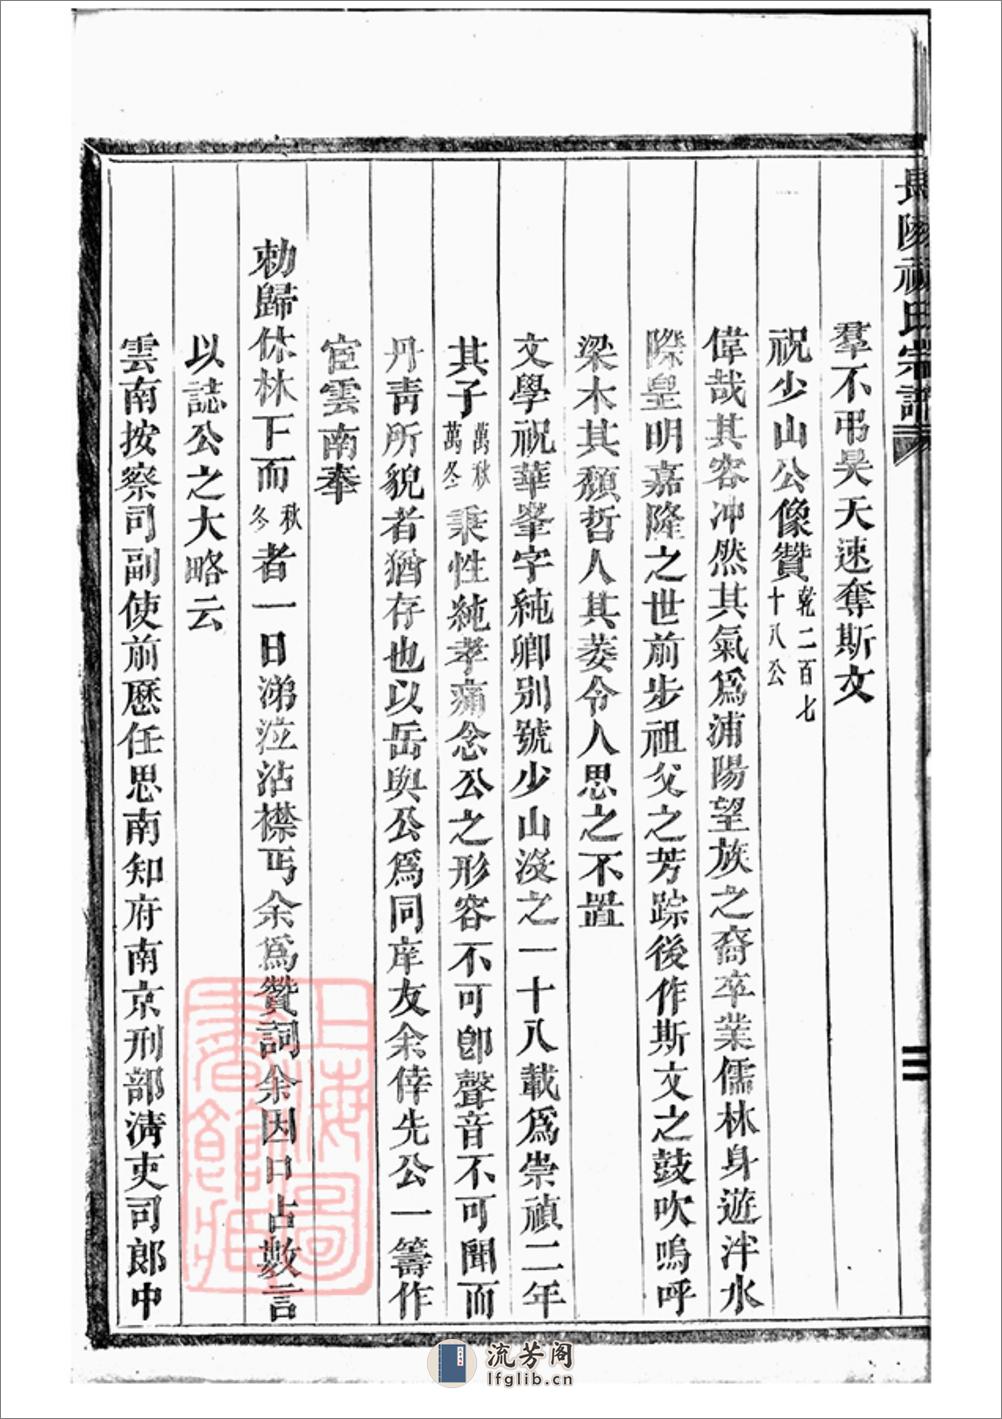 長陵祝氏宗譜
羣不弔昊天速奪斯文
祝少山公像贊乾二百七十八公
偉哉其容冲然其氣爲浦陽望族之裔卒業儒林身遊泮水
際皇明嘉隆之世前步祖父之芳踪後作斯文之鼓吹嗚呼
梁木其頹哲人其萎令人思之不置
文學祝華峯字純卿別號少山沒之一十八載爲崇禎二年
其子萬秋萬冬秉性純孝痛念公之形容不可卽聲音不可聞而
丹靑所貌者猶存也以岳與公爲同庠友余倖先公一籌作
宦雲南奉
勅歸休林下而秋冬者一日涕泣沾襟丐余爲贊詞余因口占數言
以誌公之大略云
雲南按察司副使前歷任思南知府南京刑部淸吏司郎中
上海圖書館藏
流芳阁
lfglib.cn